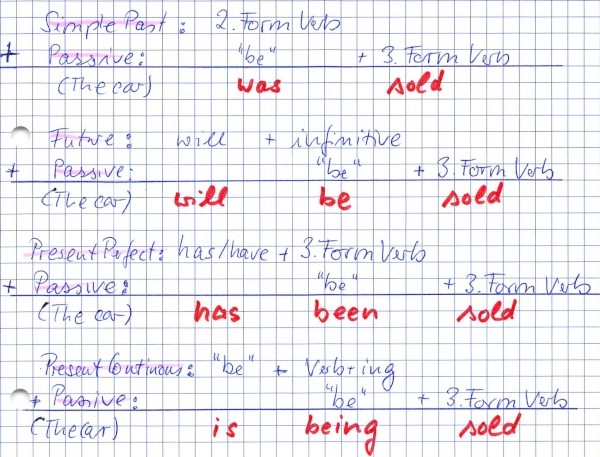 Simple Past: 2. Form Verb
+ Passive: "be" + 3. Form Verb
(The car) was sold
Future: will + infinitive
+ Passive: "be" + 3. Form Verb
(The car) will be sold
Present Perfect: has/have + 3. Form Verb
+ Passive: "be" + 3. Form Verb
(The car) has been sold
Present Continous: "be" + Verb+ing
+ Passive: "be" + 3. Form Verb
(The car) is being sold